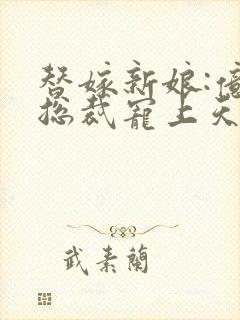 替嫁新娘:億
总裁寵上天
武素蘭